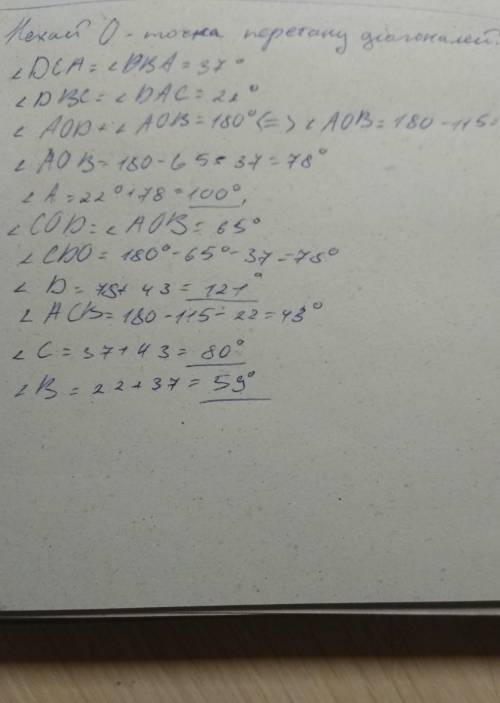 Нехай О - точка перетину діагоналей.
∠DCA = ∠DBA = 37°
∠DBC = ∠DAC = 22°
∠AOD + ∠AOB = 180° (=) ∠AOB = 180 - 115 =
∠AOB = 180 - 65 - 37 = 78°
∠A = 22° + 78 = 100°,
∠COD = ∠AOB = 65°
∠CDO = 180° - 65° - 37 = 78°
∠D = 78 + 43 = 121°
∠ACB = 180 - 115 - 22 = 43°
∠C = 37 + 43 = 80°
∠B = 22 + 37 = 59°